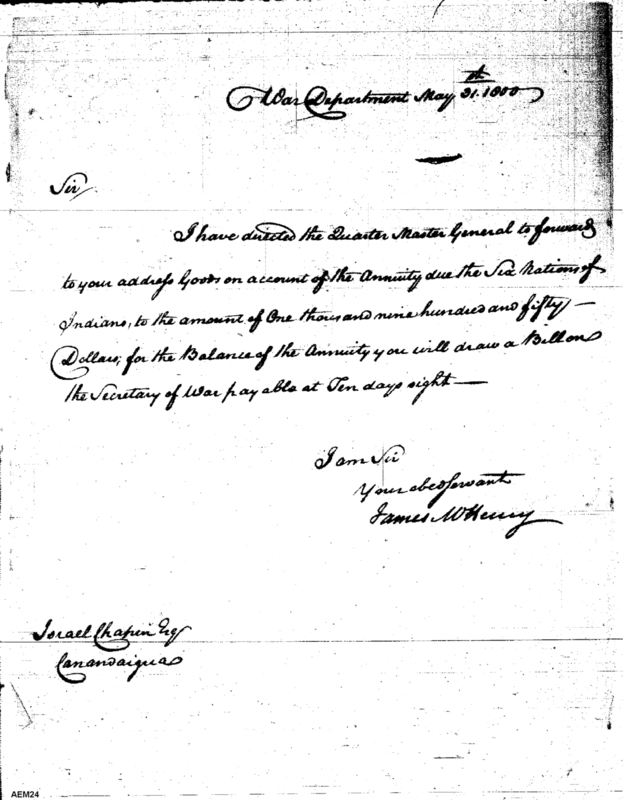 War Department May 31.st 1800
Sir
I have directed the Quarter Master General to forward
to your address Goods on account of the Annuity due the Six Nations of
Indians, to the amount of One thousand nine hundred and fifty —
Dollars; for the Balance of the Annuity you will draw a Bill on
the Secretary of War payable at Ten days sight —
I am Sir
Your obed Servant
James McHenry
Israel Chapin Esq
Canandaigua
AEM24